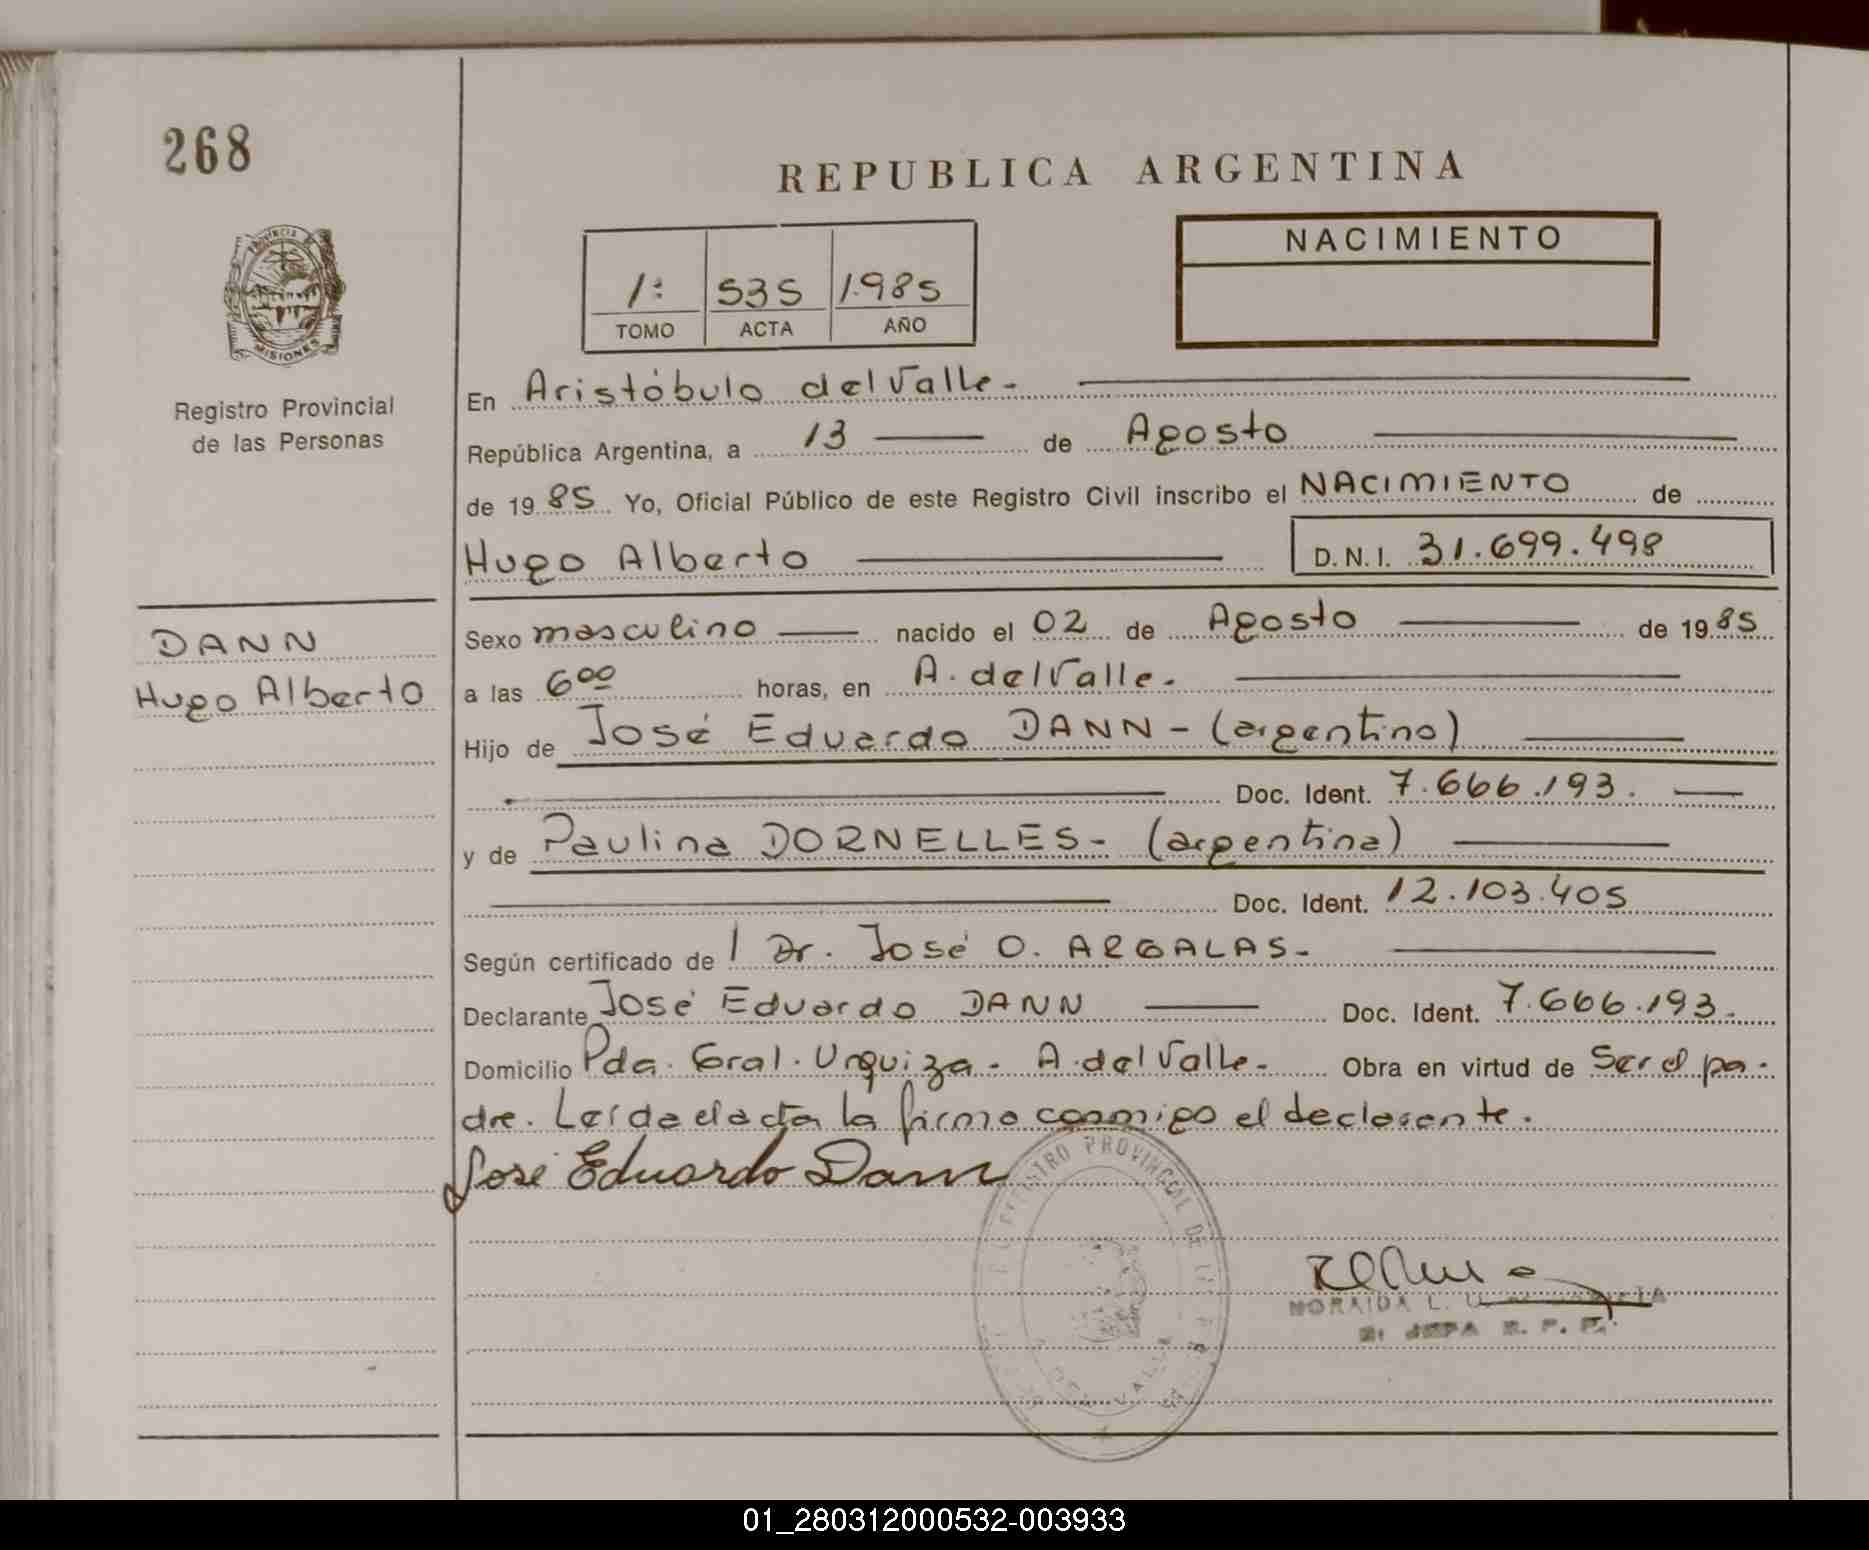 268
REPUBLICA ARGENTINA
PROVINCIA DE
MISIONES
Registro Provincial
de las Personas
1ª 535 1.985
TOMO ACTA AÑO
NACIMIENTO
En Aristóbulo del Valle.-
República Argentina, a 13 de Agosto
de 1985 Yo, Oficial Público de este Registro Civil inscribo el NACIMIENTO de
Hugo Alberto D.N.I. 31.699.498
DANN
Hugo Alberto
Sexo masculino nacido el 02 de Agosto de 1985
a las 6 00 horas, en A. del Valle.
Hijo de José Eduardo DANN - (argentino)
Doc. Ident. 7.666.193.
y de Paulina DORNELLES - (argentina)
Doc. Ident. 12.103.405
Según certificado de l Dr. José O. ARGALAS-
Declarante José Eduardo DANN Doc. Ident. 7.666.193.
Domicilio Pda. Gral. Urquiza - A. del Valle - Obra en virtud de Ser el pa-
dre. Leída el acta la firma conmigo el declarante.
José Eduardo Dann
REGISTRO PROVINCIAL DE
DEL VALLE
NORAIDA L.
01_280312000532-003933